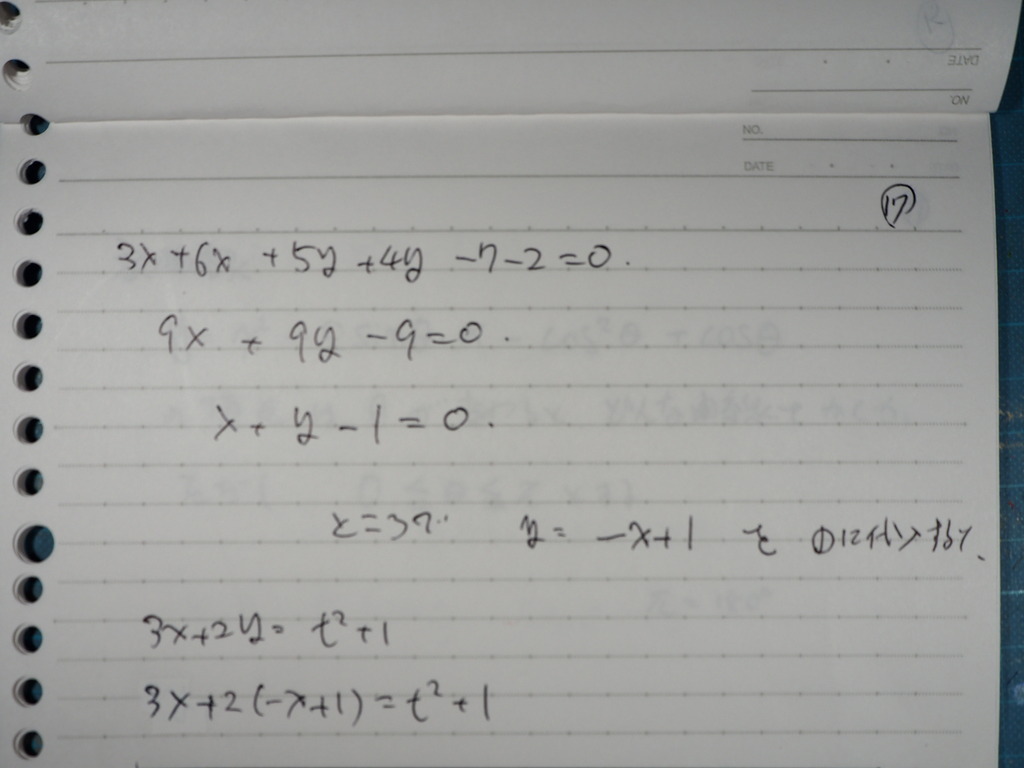 DATE
NO.
NO.
DATE
⑰
3x+6x+5y+4y-7-2=0.
9x+9y-9=0.
x+y-1=0.
ここで y=-x+1 を ①に代入すると、
3x+2y=t²+1
3x+2(-x+1)=t²+1